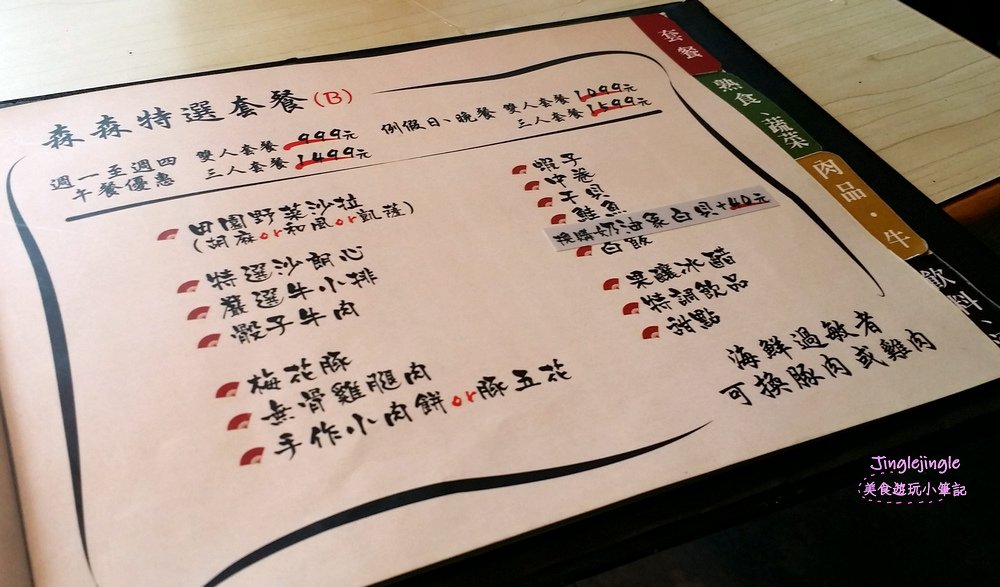 森森特選套餐(B)
週一至週四
午餐優惠
雙人套餐 999元
三人套餐 1499元
例假日、晚餐 雙人套餐 1099元
三人套餐 1599元
田園野菜沙拉
(胡麻or和風or凱薩)
特選沙朗心
嚴選牛小排
骰子牛肉
梅花豚
無骨雞腿肉
手作小肉餅or豚五花
蝦子
中卷
干貝
鮭魚
換購奶油象白貝+40元
白飯
果釀冰醋
特調飲品
甜點
海鮮過敏者
可換豚肉或雞肉
套餐
熟食、蔬菜
肉品・牛
飲料、
Jinglejingle
美食遊玩小筆記